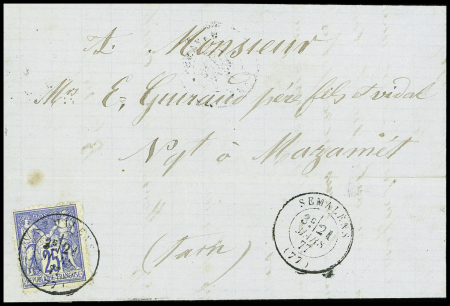 A. Monsieur
Mrs E, Guiraud père fils & vidal
Ngt à Mazamet
(Tarn)
SEMALENS
3E 21
MARS
77
(77)
25